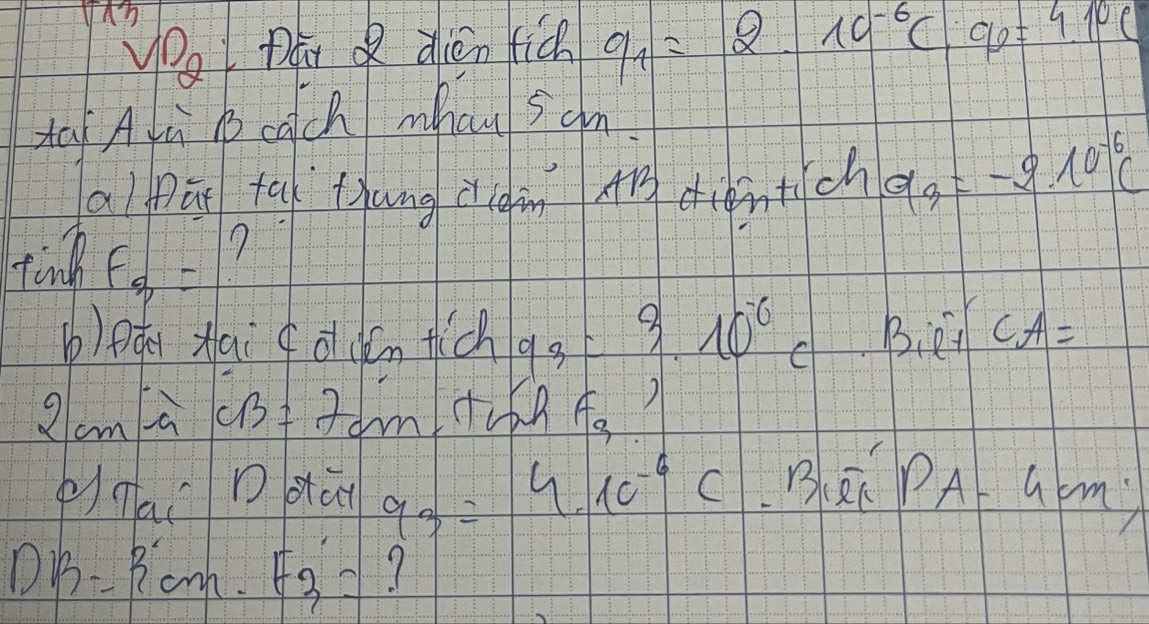 VD2: Đặt 2 điện tích q1 = 2. 10⁻⁶C; q2 = 4.10 C
tại A và B cách nhau 5 cm.
a) Đặt tại trung điểm AB điện tích q3 = -2.10⁻⁶C
tính F3 = ?
b) Đặt tại C điện tích q3 = 3. 10⁻⁶ C. Biết CA =
2 cm và CB = 7cm, tính F3?
c) Tại D đặt q3 = 4.10⁻⁶ C. Biết DA = 4 cm;
DB = 3 cm. F3 = ?